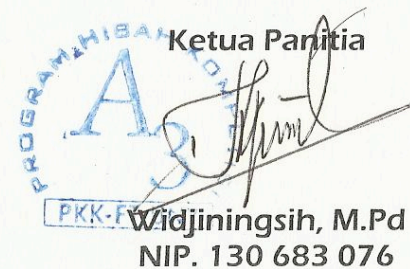 Ketua Panitia
PROGRAM HIBAH
A3
Widjiningsih, M.Pd
NIP. 130 683 076